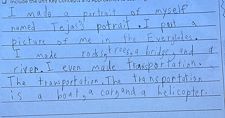 Include the unit key concepts and
I made a portrait of myself
named Tejas's potrait. I put a
picture of me in the Everglades.
I made rocks, trees, a bridge, and a
river. I even made transportation.
The transportation. The transportation
is a boat, a car, and a helicopter.